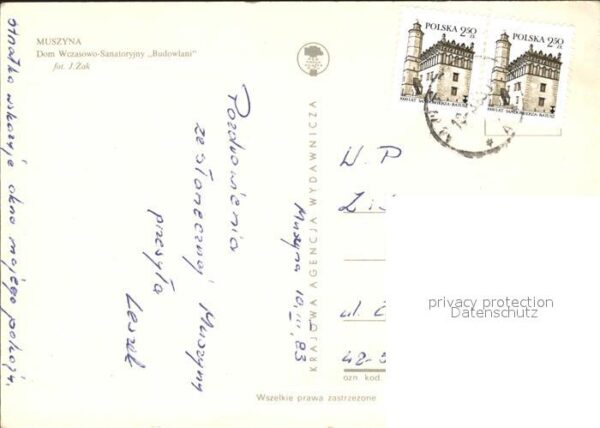 MUSZYNA
Dom Wczasowo-Sanatoryjny „Budowlani"
fot. J. Żak
Strzałka wskazuje okno mojego pokoju.
Pozdrowienia
ze słonecznej Muszyny
przesyła
Leszek
Muszyna 10.III.83
KRAJOWA AGENCJA WYDAWNICZA
POLSKA 250 ZŁ
POLSKA 250 ZŁ
W. P
ul.
42-5
ozn. kod.
Wszelkie prawa zastrzeżone
privacy protection
Datenschutz